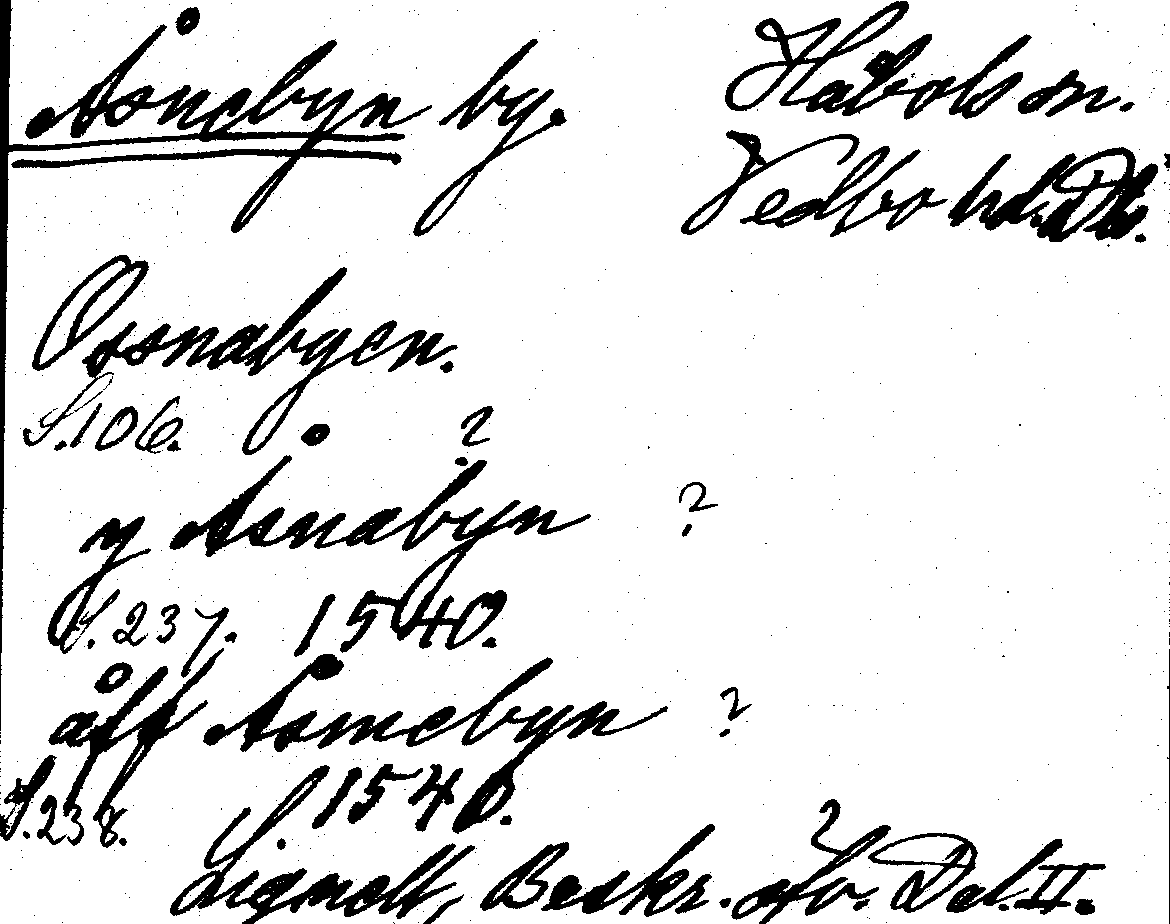 Åsnebyn by. Håbols sn.
Vedbo hd. Dl.
Ossnabyen.
S. 106. ?
y Åsnabyn ?
S. 237. 1540.
åff Åsmebyn ?
S. 238. S. 1540.
Lignell, Beskr. öfv. Dal. II.